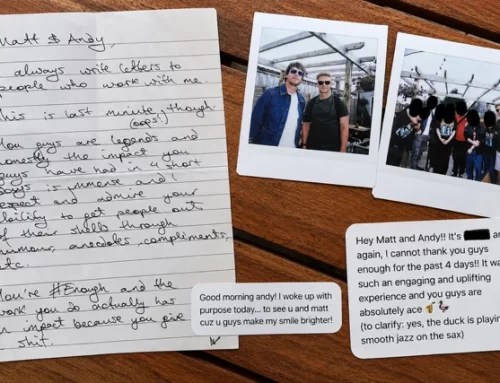 Matt & Andy,
I always write letters to
people who work with me.
This is last minute, though
(oops!)
You guys are legends and
honestly the impact you
guys have had in 4 short
days is immense and I
respect and admire your
ability to get people out
of their shells through
humour, anecdotes, compliments,
etc.
You're #Enough and the
work you do actually has
an impact because you give
a shit.
Good morning andy! I woke up with
purpose today... to see u and matt
cuz u guys make my smile brighter!
Hey Matt and Andy!! It's
again, I cannot thank you guys
enough for the past 4 days!! It was
such an engaging and uplifting
experience and you guys are
absolutely ace 🎷🦆
(to clarify: yes, the duck is playing
smooth jazz on the sax)